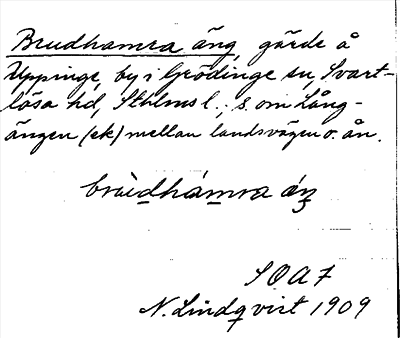 Brudhamra äng, gärde å
Uppinge, by i Grödinge sn, Svart-
lösa hd, Sthlms l., s. om Lång-
ängen (ek) mellan landsvägen o. ån.
brùdhámra áŋ
SOAF
N. Lindqvist 1909